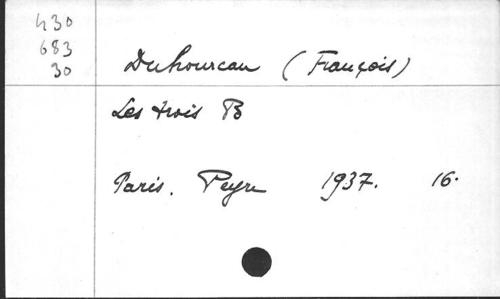 430
683
30
Duhourcau (François)
Les trois B
Paris. Peyre 1937. 16.